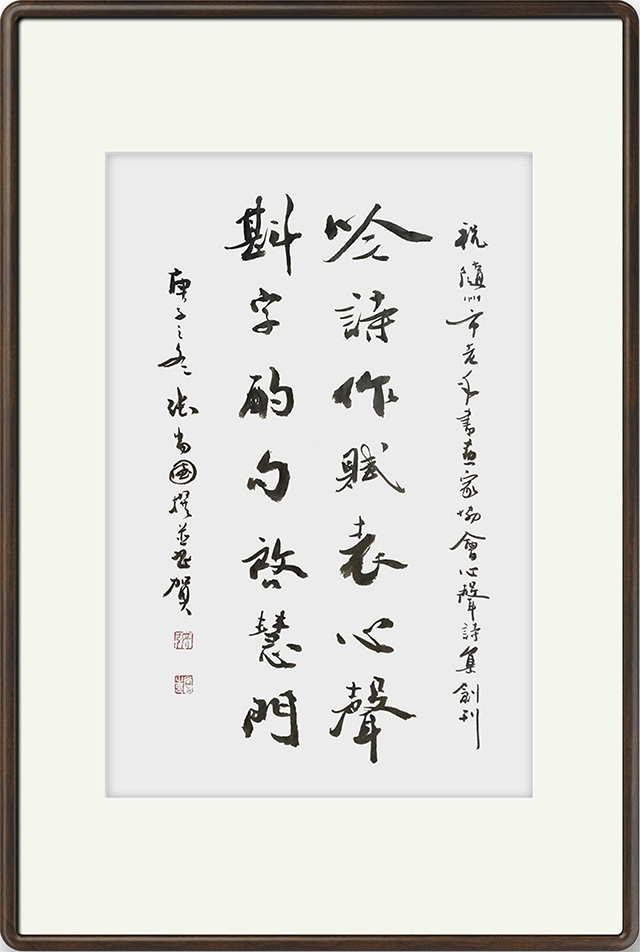 祝隨州市老年書畫家協會心聲詩集創刊
吟詩作賦表心聲
斟字酌句啓慧門
庚子之冬張尚國撰並書賀